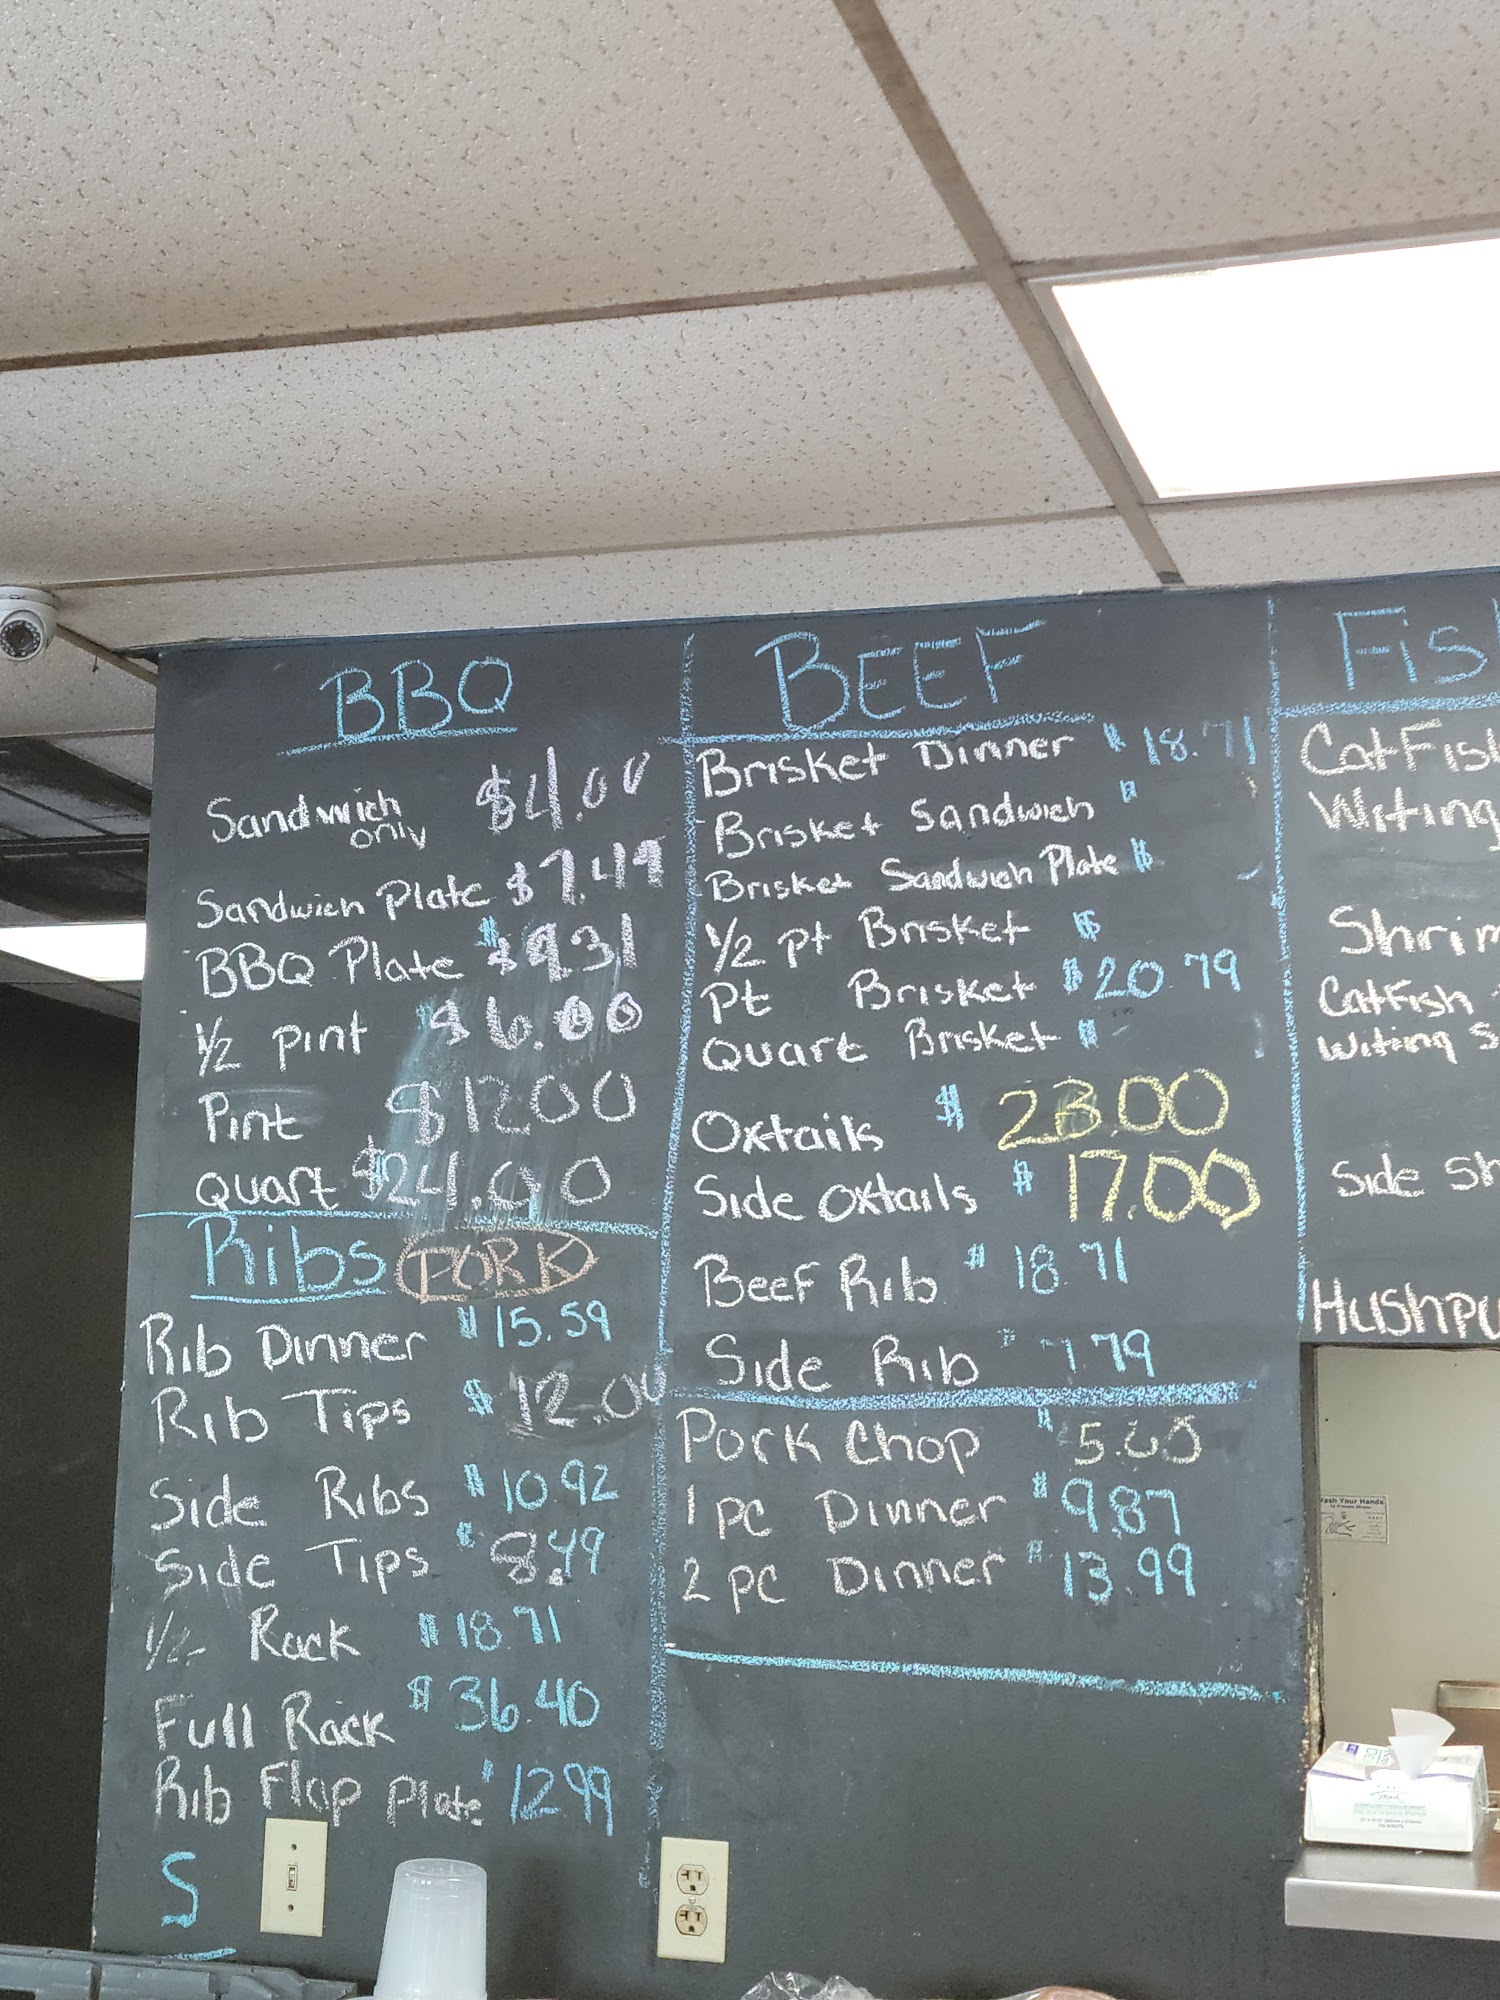 BBQ
Sandwich only $4.00
Sandwich Plate $7.49
BBQ Plate $9.31
1/2 pint $6.00
Pint $12.00
Quart $24.00
Ribs PORK
Rib Dinner $15.59
Rib Tips $12.00
Side Ribs $10.92
Side Tips $8.49
1/2 Rack $18.71
Full Rack $36.40
Rib Flap Plate $12.99
S
BEEF
Brisket Dinner $18.71
Brisket Sandwich $
Brisket Sandwich Plate $
1/2 pt Brisket $
Pt Brisket $20.79
Quart Brisket $
Oxtails $23.00
Side Oxtails $17.00
Beef Rib $18.71
Side Rib $7.79
Pork Chop $5.00
1 pc Dinner $9.87
2 pc Dinner $13.99
Fis
CatFis
Witing
Shrim
Catfish
Witing S
Side Sh
Hushpu
Wash Your Hands